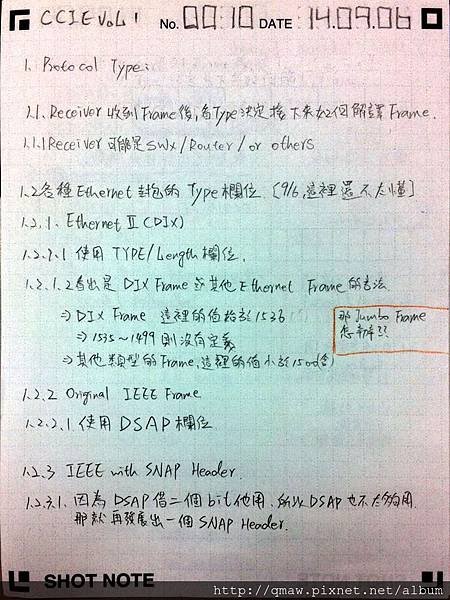 CCIE Vol 1 No. 00:10 DATE 14.09.06
1. Protocol Type:
1.1. Receiver 收到 Frame 後, 看 Type 決定接下來如何解譯 Frame.
1.1.1 Receiver 可能是 SWx / Router / or others
1.2 各種 Ethernet 封包的 Type 欄位. [9/6, 這裡還不太懂]
1.2.1. Ethernet II (DIX)
1.2.1.1 使用 TYPE/Length 欄位.
1.2.1.2 看出是 DIX Frame 或其他 Ethernet Frame 的方法
⇒ DIX Frame 這裡的值 於 1536
⇒ 1535~1499 則沒有定義
⇒ 其他類型的 Frame, 這裡的值小於 1500(含)
那 Jumbo Frame
怎辦??
1.2.2 Original IEEE Frame
1.2.2.1 使用 DSAP 欄位
1.2.3 IEEE with SNAP Header.
1.2.3.1. 因為 DSAP 借二個 bit 他用, 所以 DSAP 也不太夠用.
那就再發展出一個 SNAP Header.
SHOT NOTE
http://qmaw.pixnet.net/album